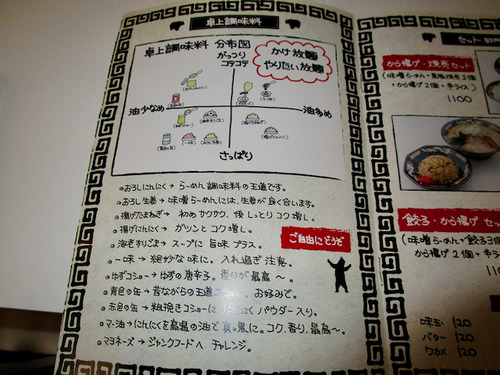 卓上調味料
卓上調味料 分布図
がっつり
コテコテ
かけ放題
やりたい放題
油少なめ
油多め
さっぱり
おろしにんにく→らーめん調味料の王道です。
おろし生姜→味噌らーめんには、生姜が良く合います。
揚げたまねぎ→初めサクサク、後しっとりコク増し。
揚げにんにく→ガツンとコク増し。
海老すりごま→スープに旨味プラス。
ご自由にどうぞ
一味→絶妙な味に。入れ過ぎ注意。
ゆずコショー→ゆずの唐辛子。香りが最高〜。
青色の缶→昔ながらの王道コショー。お好みで。
赤色の缶→粗挽きコショーに、にんにくパウダー入り。
マー油→にんにくを高温の油で真っ黒に。コク、香り、最高〜。
マヨネーズ→ジャンクフードへチャレンジ。
から揚げ・焼売セット
から揚げ2個・半ライス)
1100
餃子・から揚げセット
(味噌らーめん・餃子3個
から揚げ2個・半ライス
味玉 120
バター 120
ワカメ 120